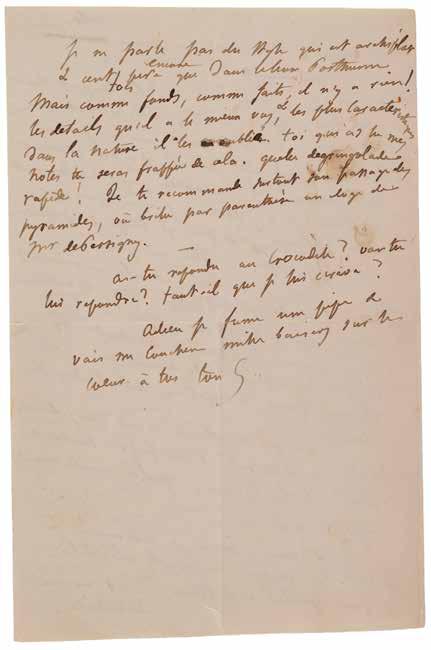 je ne parle pas du style qui est archiplat
& cent fois pire encore que dans le livre Posthume
Mais comme fonds, comme faits, il n'y a rien!
les détails qu'il a le mieux vus, & les plus caractéristiques
dans la nature il les oublie. toi qui as lu mes
notes tu seras frappée de cela. quelle dégringolade
rapide! Je te recommande surtout son passage des
pyramides, où brille par parenthèse un éloge de
Mr de Persigny.
as-tu répondu au Crocodile? vas-tu
lui répondre? faut-il que je lui écrive?
Adieu je fume une pipe &
vais me coucher mille baisers sur le
coeur à toi ton G